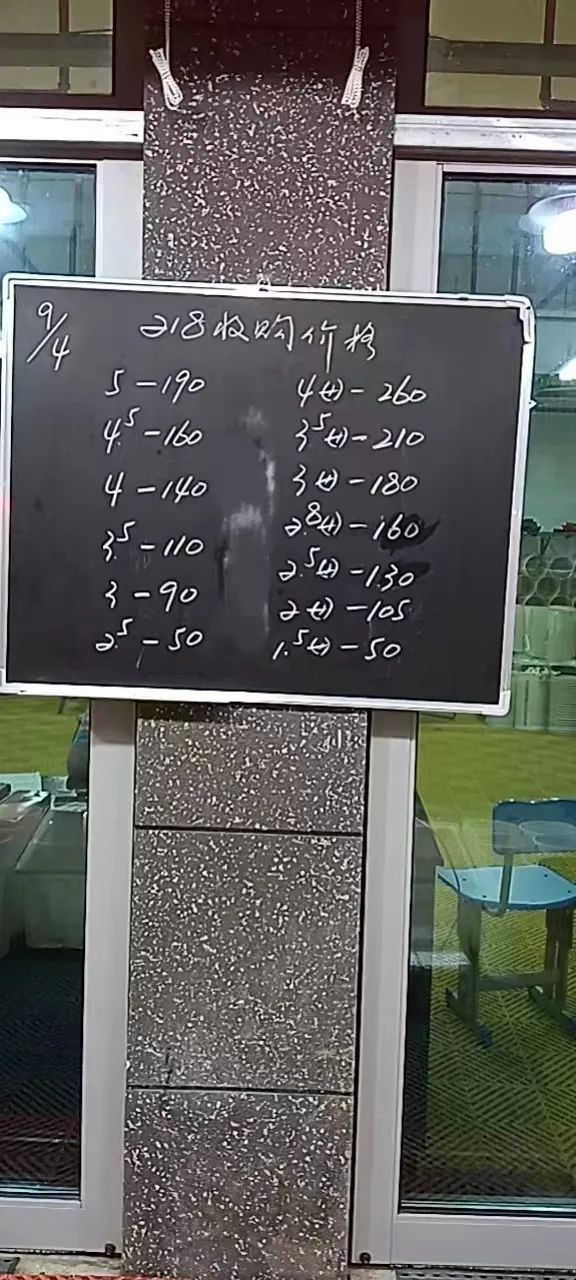 9/4
218收购价格
5-190
4.5-160
4-140
3.5-110
3-90
2.5-50
4(+)-260
3.5(+)-210
3(+)-180
2.8(+)-160
2.5(+)-130
2(+)-105
1.5(+)-50